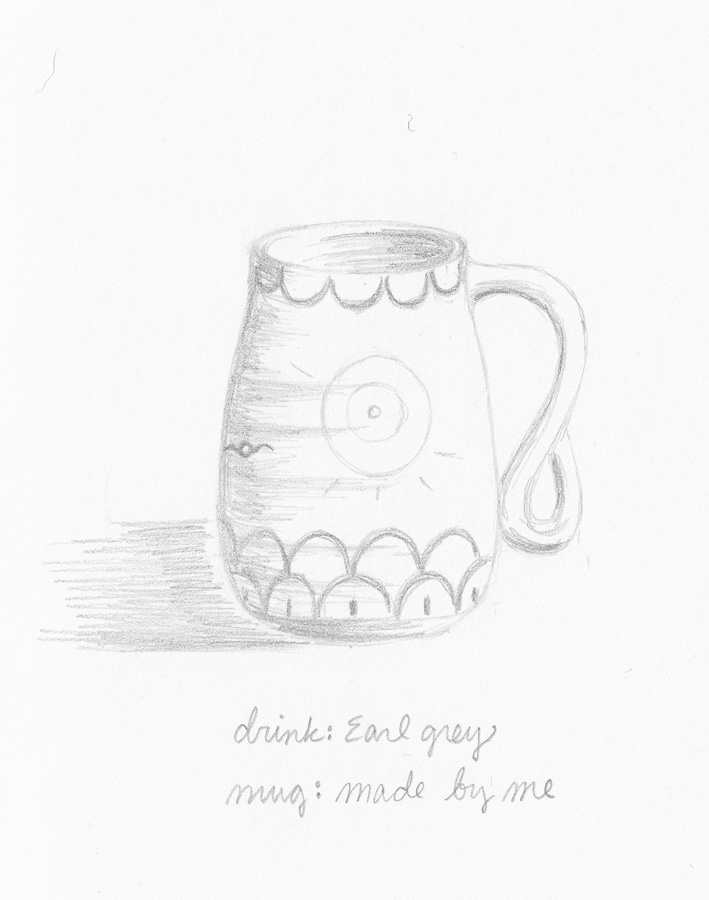 drink: Earl grey
mug: made by me